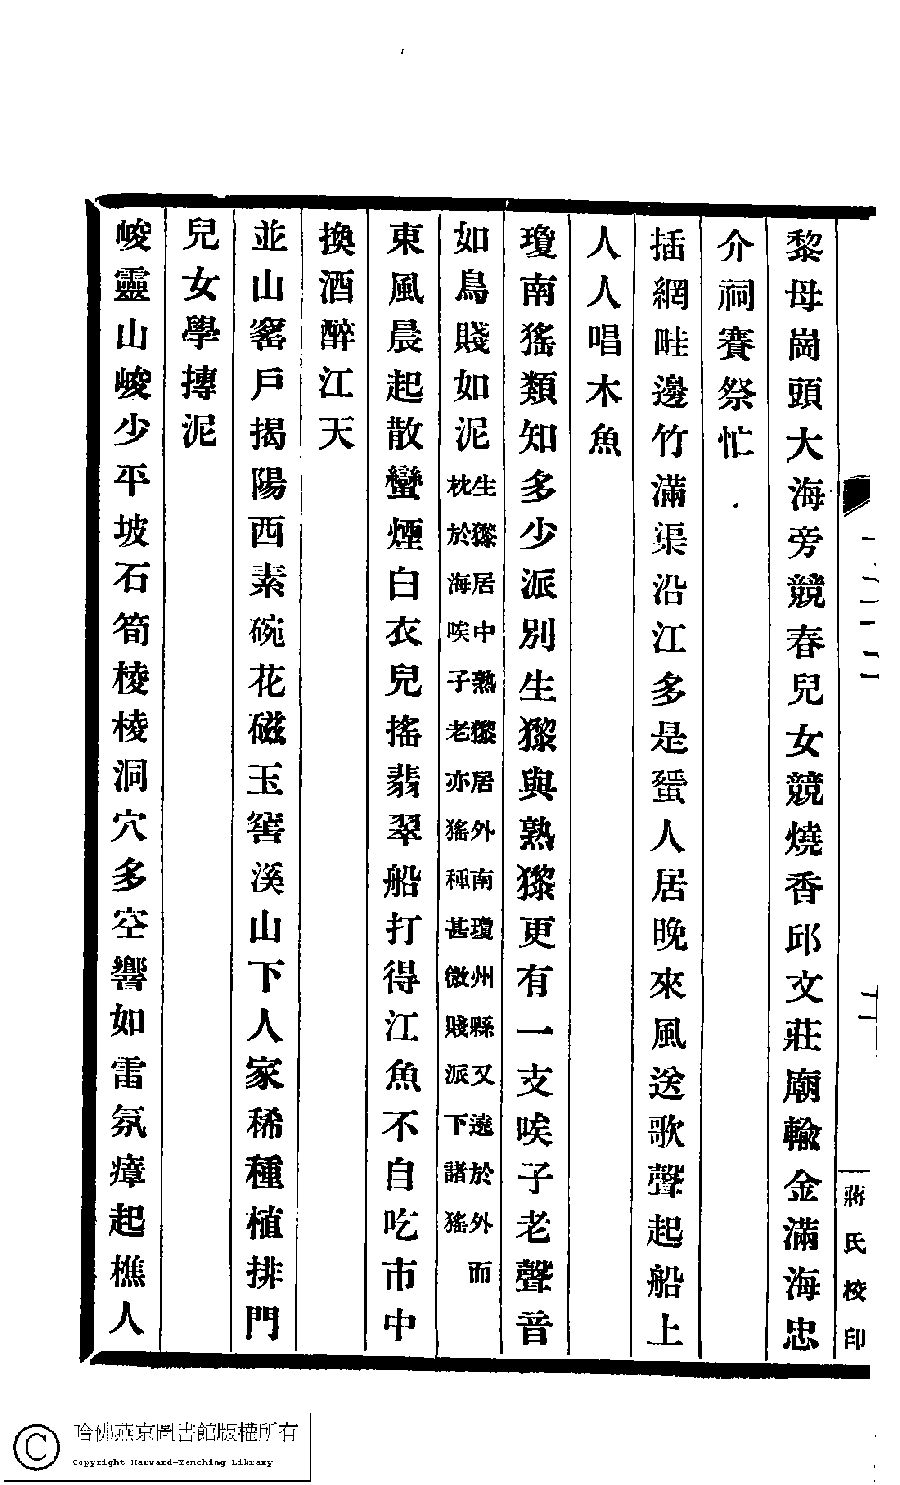 黎母崗頭大海旁競春兒女競燒香邱文莊廟輸金滿海忠
介祠賽祭忙
插網畦邊竹滿渠沿江多是蜑人居晚來風送歌聲起船上
人人唱木魚
瓊南猺類知多少派別生㺜與熟㺜更有一支唉子老聲音
如鳥賤如泥生㺜居中熟㺜居外南瓊州縣又遠於外而
枕於海唉子老亦猺種甚微賤派下諸猺
東風晨起散蠻煙白衣兒搖翡翠船打得江魚不自吃市中
換酒醉江天
並山窰戶揭陽西素碗花磁玉窖溪山下人家稀種植排門
兒女學摶泥
峻靈山峻少平坡石筍棱棱洞穴多空響如雷氛瘴起樵人
蔣氏校印
哈佛燕京圖書館版權所有
Copyright Harvard-Yenching Library